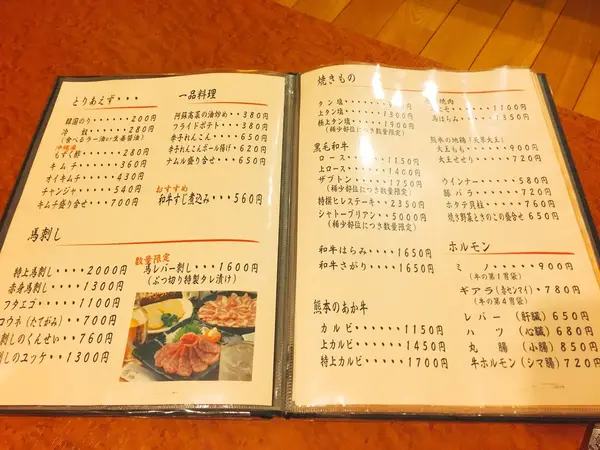 とりあえず・・・
韓国のり・・・・・200円
冷奴・・・・・・280円
(食べるラー油or生姜醤油)
沖縄産
もずく酢・・・・・280円
キムチ・・・・・360円
オイキムチ・・・・430円
チャンジャ・・・・540円
キムチ盛り合せ・・・700円
馬刺し
特上馬刺し・・・・2000円
赤身馬刺し・・・・1300円
フタエゴ・・・・・1100円
コウネ(たてがみ)・・700円
刺しのくんせい・・・760円
刺しのユッケ・・・1300円
一品料理
阿蘇高菜の油炒め・・380円
フライドポテト・・・380円
辛子れんこん・・・・650円
辛子れんこんボール揚げ・・620円
ナムル盛り合せ・・・650円
おすすめ
和牛すじ煮込み・・・560円
数量限定
馬レバー刺し・・・1600円
(ぶつ切り特製タレ漬け)
焼きもの
タン塩
上タン塩
極上タン塩
(稀少部位につき数量限定)
黒毛和牛
ロース・・・・・1150円
上ロース・・・・・1400円
ザブトン・・・・・1750円
(稀少部位につき数量限定)
特撰ヒレステーキ・・2350円
シャトーブリアン・・5000円
(稀少部位につき数量限定)
和牛はらみ・・・・1650円
和牛さがり・・・・1650円
熊本のあか牛
カルビ・・・・・1150円
上カルビ・・・・・1450円
特上カルビ・・・・1700円
焼肉
1100円
馬はらみ・・・・1350円
熊本の地鶏「天草大王」
大王もも・・・・900円
大王せせり・・・720円
ウインナー・・・・580円
豚バラ・・・・・720円
ホタテ貝柱・・・・760円
焼き野菜ときのこの盛合せ 650円
ホルモン
ミノ・・・・・900円
(牛の第1胃袋)
ギアラ(赤センマイ)・780円
(牛の第4胃袋)
レバー(肝臓)650円
ハツ(心臓)680円
丸腸(小腸)850円
牛ホルモン(シマ腸)720円